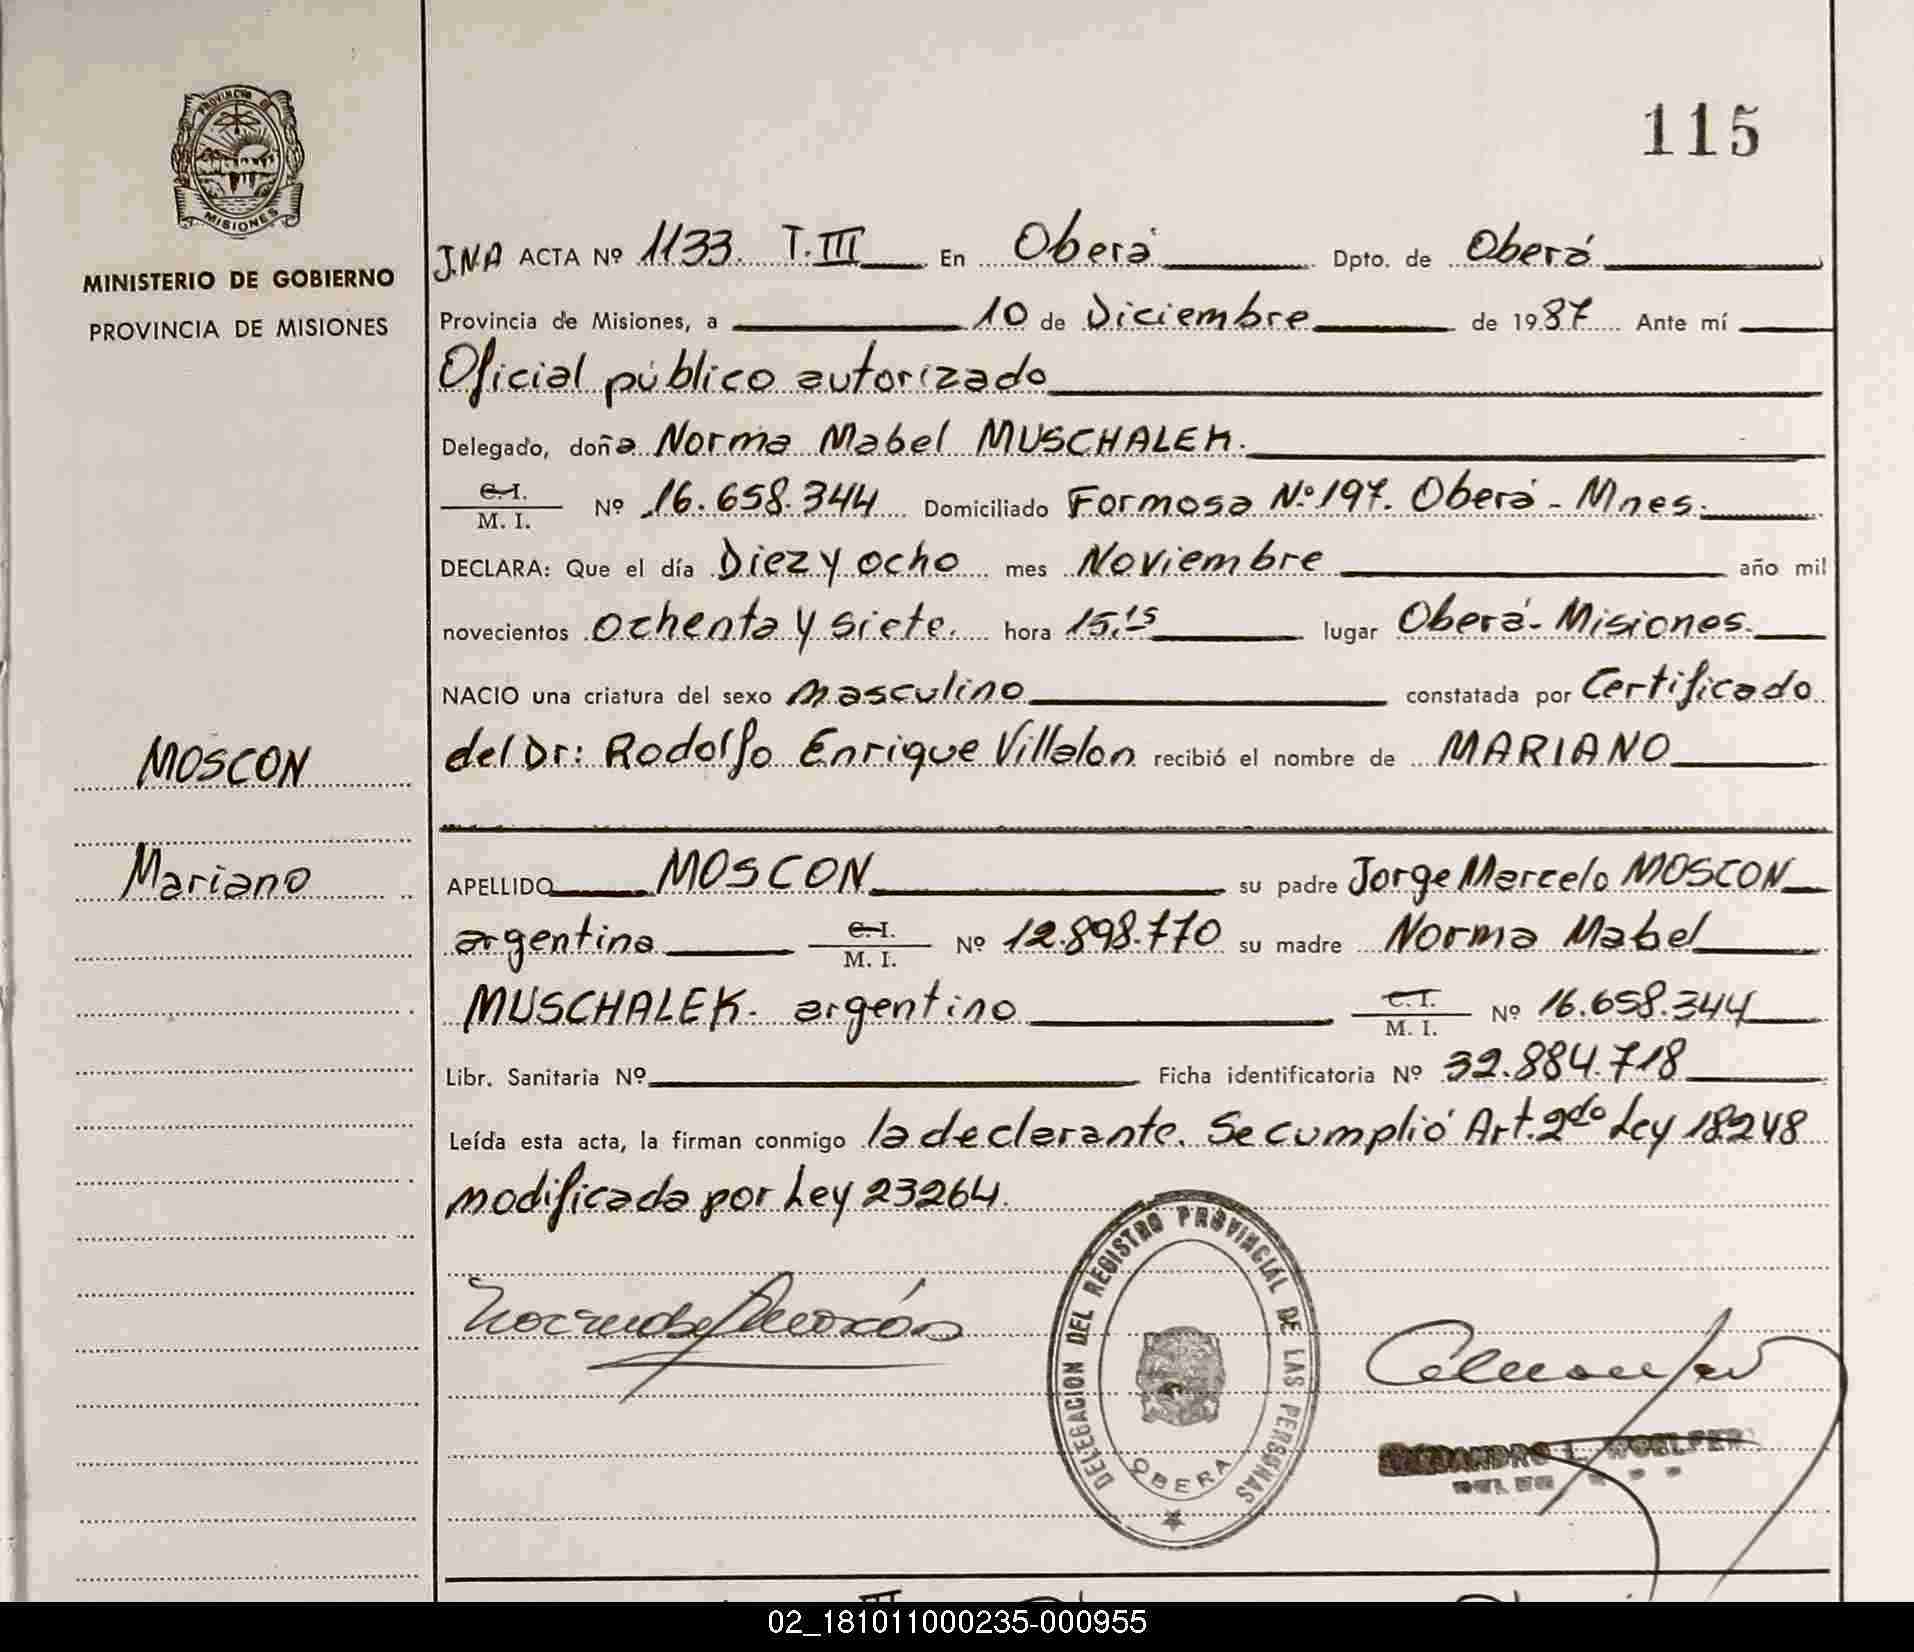 PROVINCIA DE
MISIONES
MINISTERIO DE GOBIERNO
PROVINCIA DE MISIONES
115
J.N.A ACTA Nº 1133. T.III En Oberá Dpto. de Oberá
Provincia de Misiones, a 10 de Diciembre de 1987 Ante mí
Oficial público autorizado
Delegado, doña Norma Mabel MUSCHALEK.
C.I.
M. I. Nº 16.658.344 Domiciliado Formosa Nº 197. Oberá - Mnes.
DECLARA: Que el día Diez y ocho mes Noviembre año mil
novecientos ochenta y siete. hora 15,15 lugar Oberá - Misiones.
NACIO una criatura del sexo masculino constatada por Certificado
del Dr: Rodolfo Enrique Villalon recibió el nombre de MARIANO
MOSCON
Mariano
APELLIDO MOSCON su padre Jorge Marcelo MOSCON
argentina C.I.
M. I. Nº 12.898.770 su madre Norma Mabel
MUSCHALEK. argentino C.I.
M. I. Nº 16.658.344
Libr. Sanitaria Nº Ficha identificatoria Nº 32.884.718
Leída esta acta, la firman conmigo la declarante. Se cumplió Art. 2do Ley 18248
modificada por Ley 23264.
DELEGACION DEL REGISTRO PROVINCIAL DE LAS PERSONAS
OBERA
02_181011000235-000955